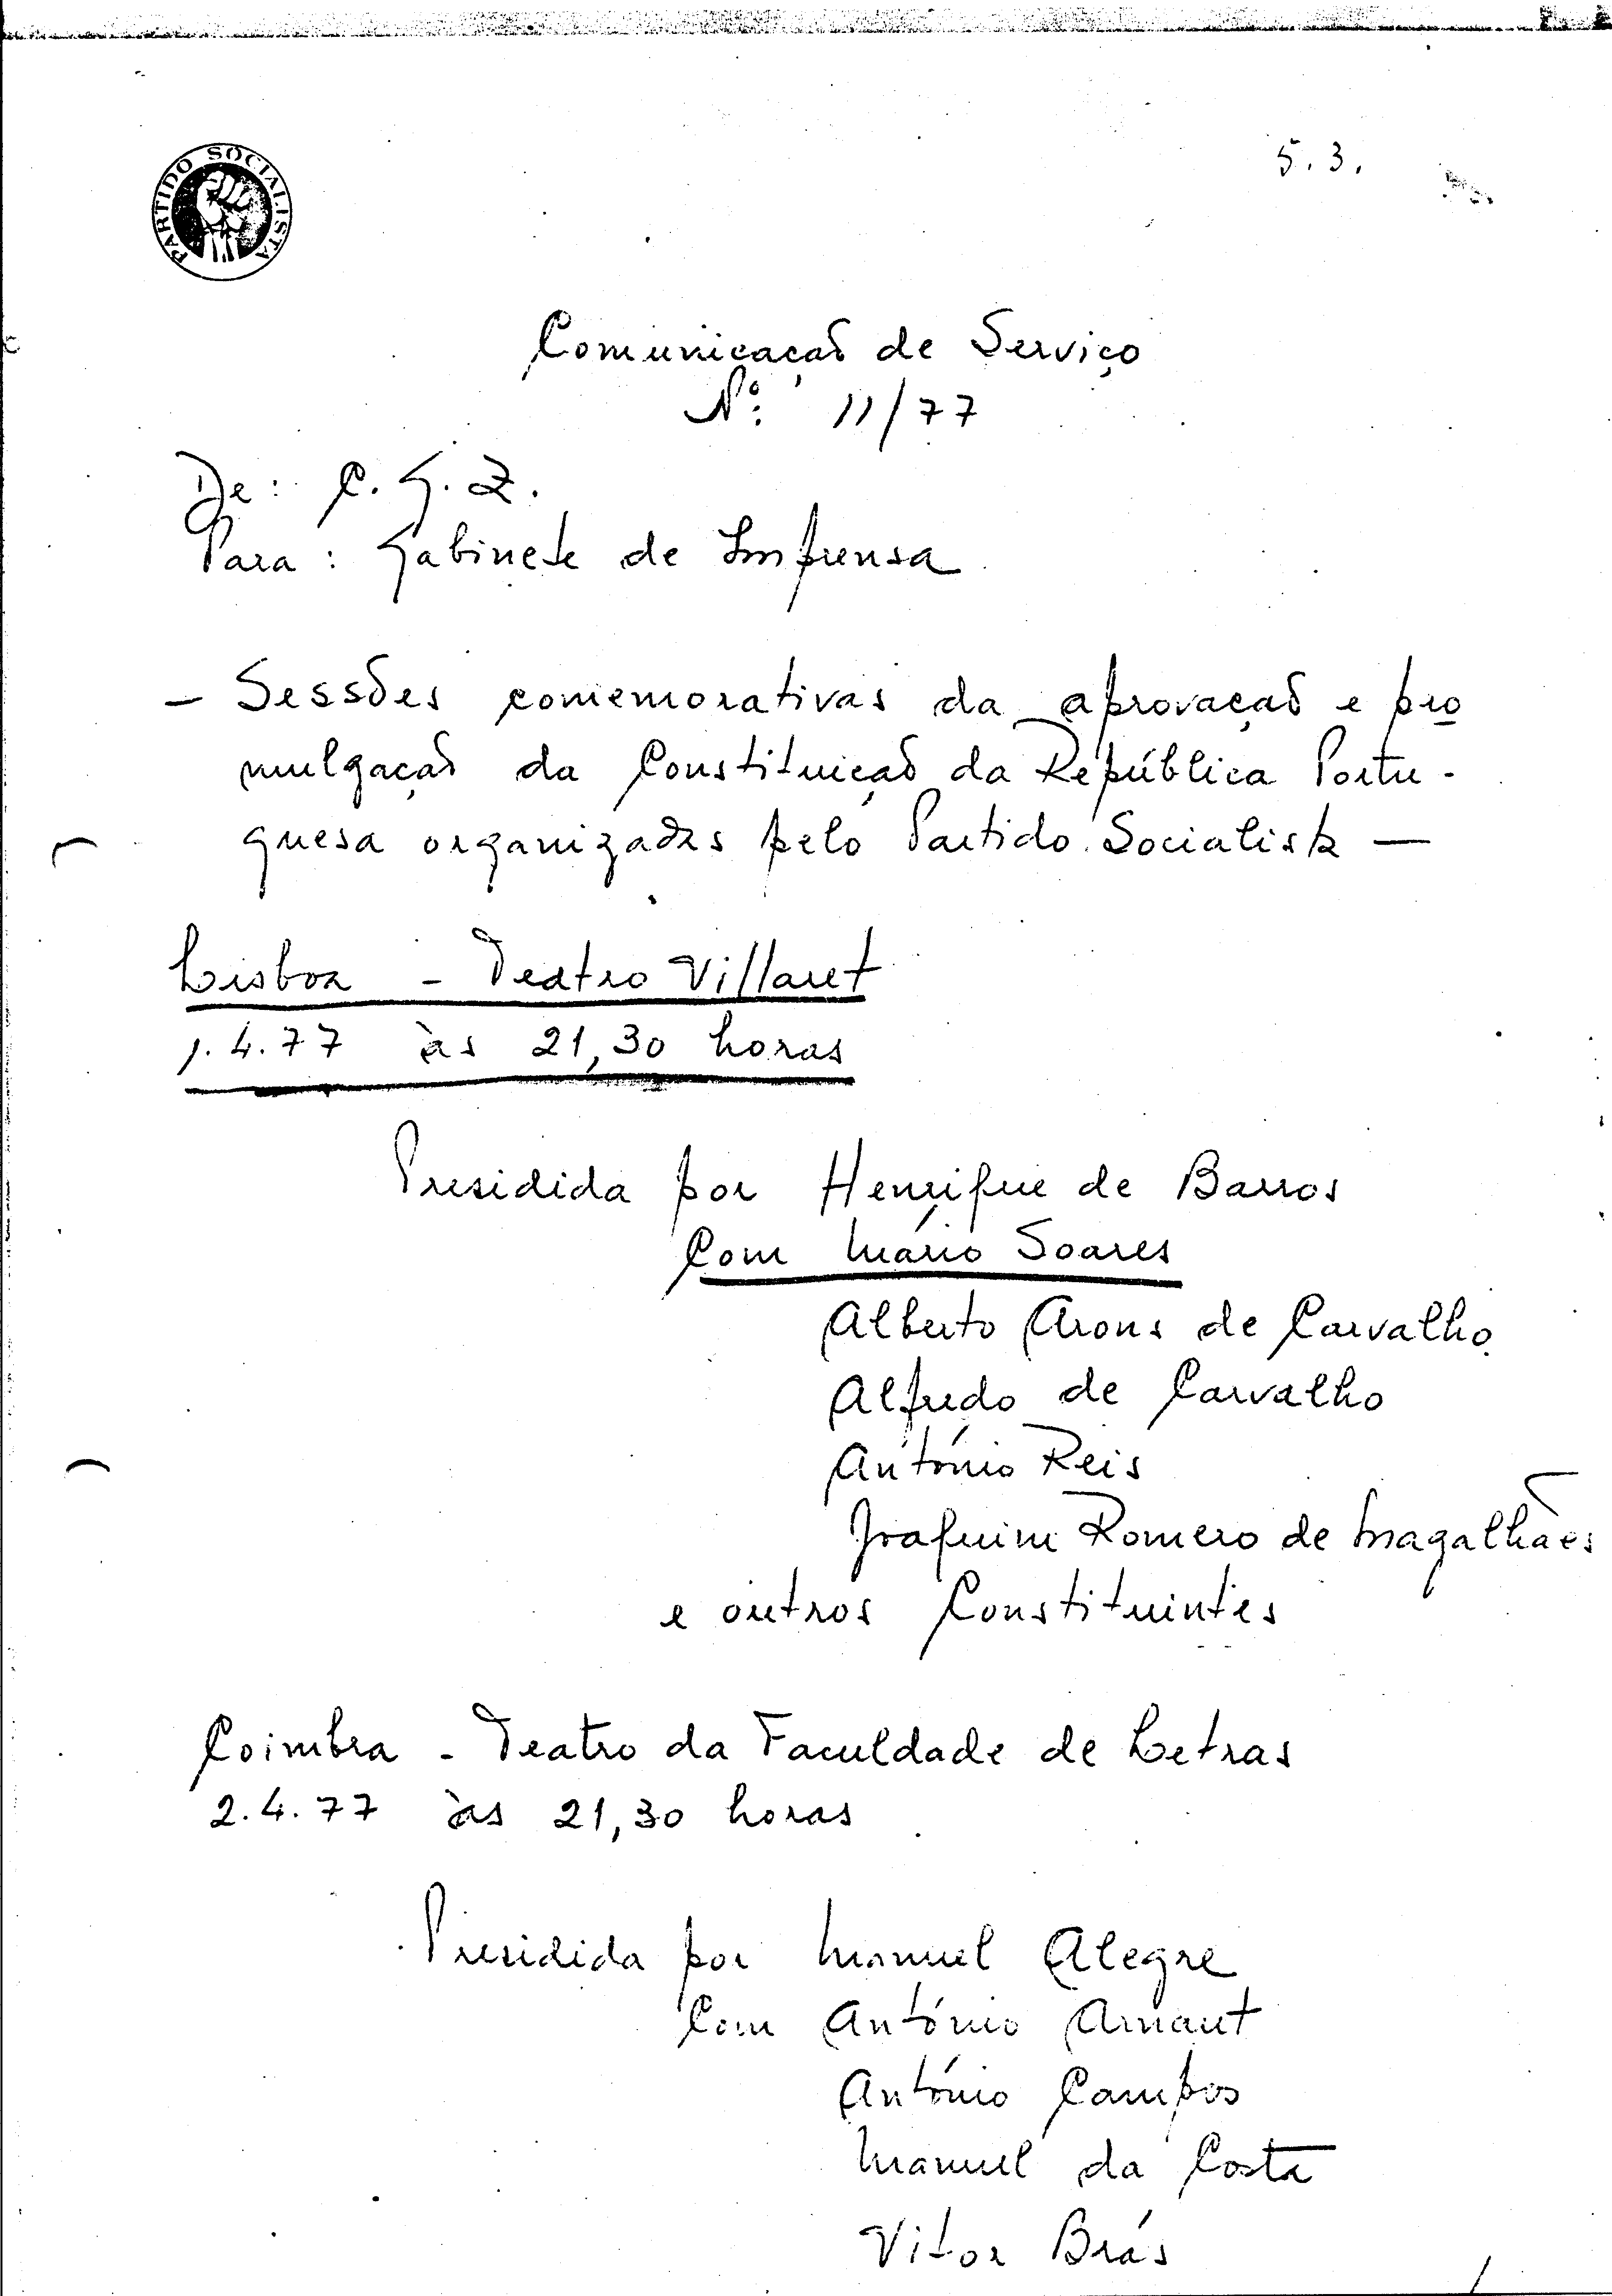 5.3.
PARTIDO SOCIALISTA
Comunicação de Serviço
Nº: 11/77
De: C. G. Z.
Para: Gabinete de Imprensa
- Sessões comemorativas da aprovação e pro
mulgação da Constituição da República Portu-
guesa organizadas pelo Partido Socialista -
Lisboa - Teatro Villaret
1.4.77 às 21,30 horas
Presidida por Henrique de Barros
Com Mário Soares
Alberto Arons de Carvalho
Alfredo de Carvalho
António Reis
Joaquim Romero de Magalhães
e outros Constituintes
Coimbra - Teatro da Faculdade de Letras
2.4.77 às 21,30 horas
Presidida por Manuel Alegre
Com António Arnaut
António Campos
Manuel da Costa
Vitor Brás